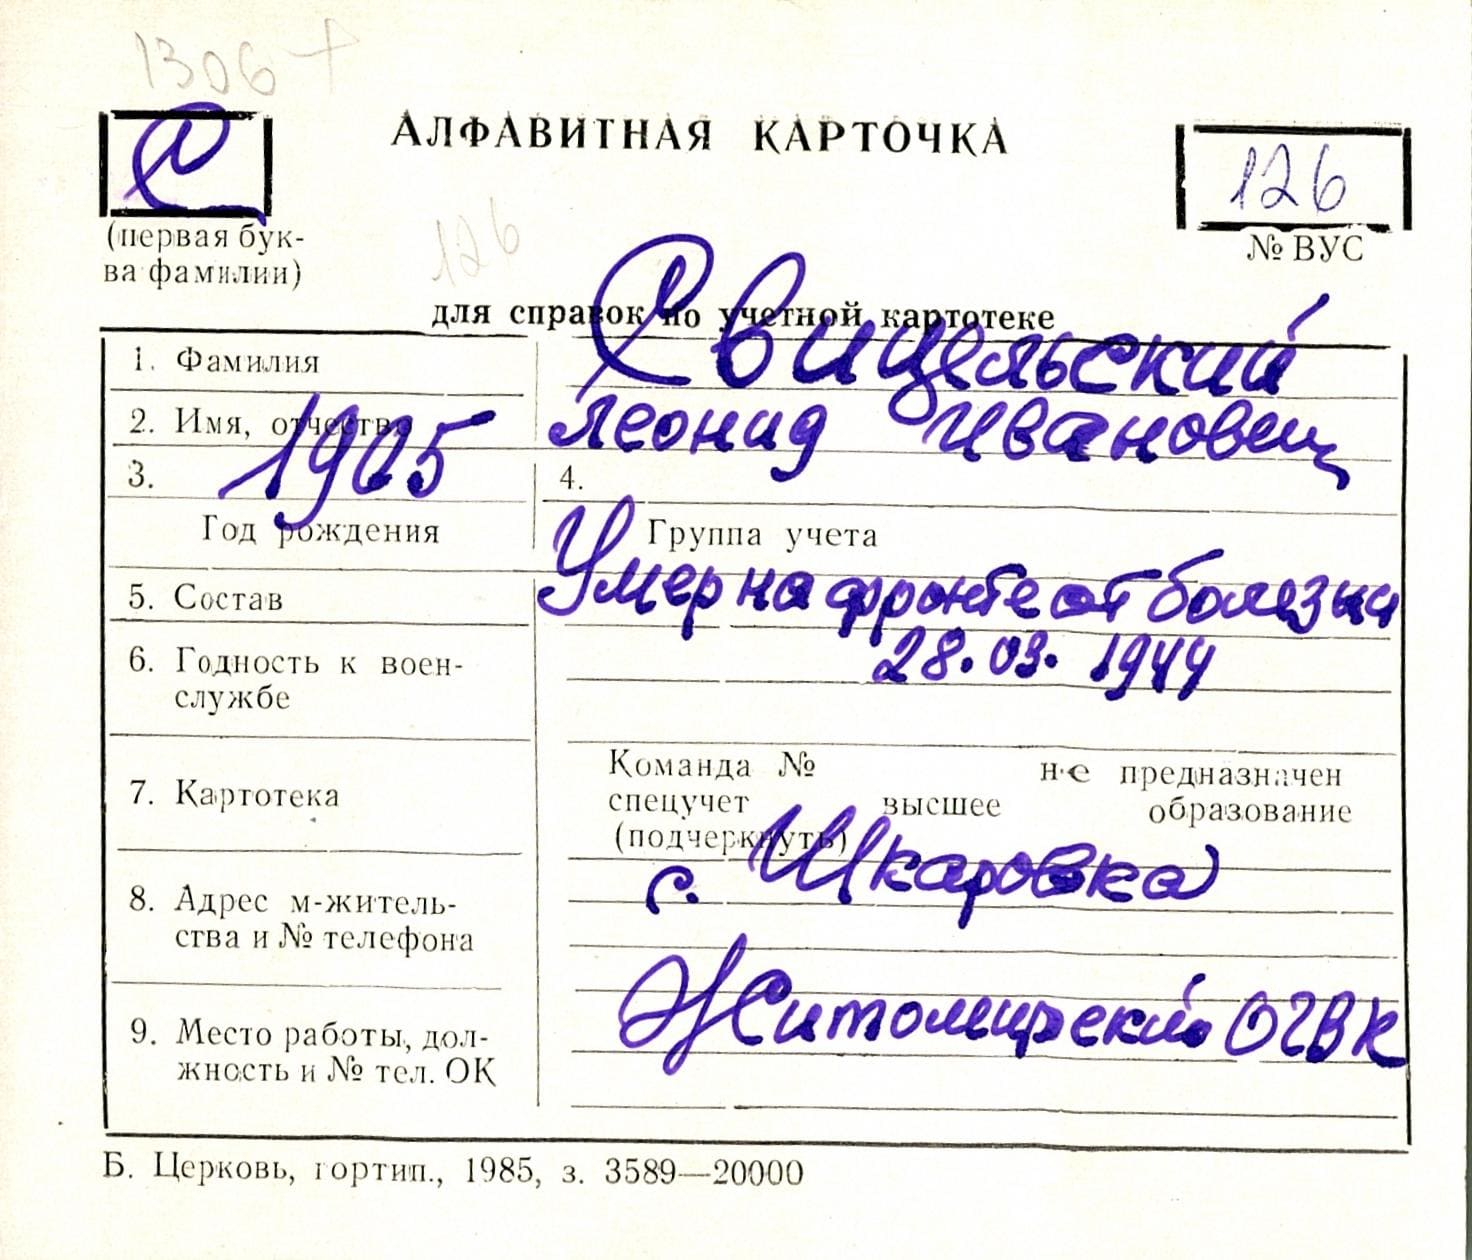 1306 +
С
АЛФАВИТНАЯ КАРТОЧКА
126
(первая бук-
ва фамилии)
№ ВУС
126
для справок по учетной картотеке
1. Фамилия
Свицельский
2. Имя, отчество
Леонид Иванович
3. 1905
4.
Год рождения
Группа учета
5. Состав
Умер на фронте от болезни
28.03. 1944
6. Годность к воен-
службе
7. Картотека
Команда № не предназначен
спецучет высшее образование
(подчеркнуть)
8. Адрес м-житель-
ства и № телефона
с. Шкаровка
9. Место работы, дол-
жность и № тел. ОК
Житомирский ОГВК
Б. Церковь, гортип., 1985, з. 3589—20000